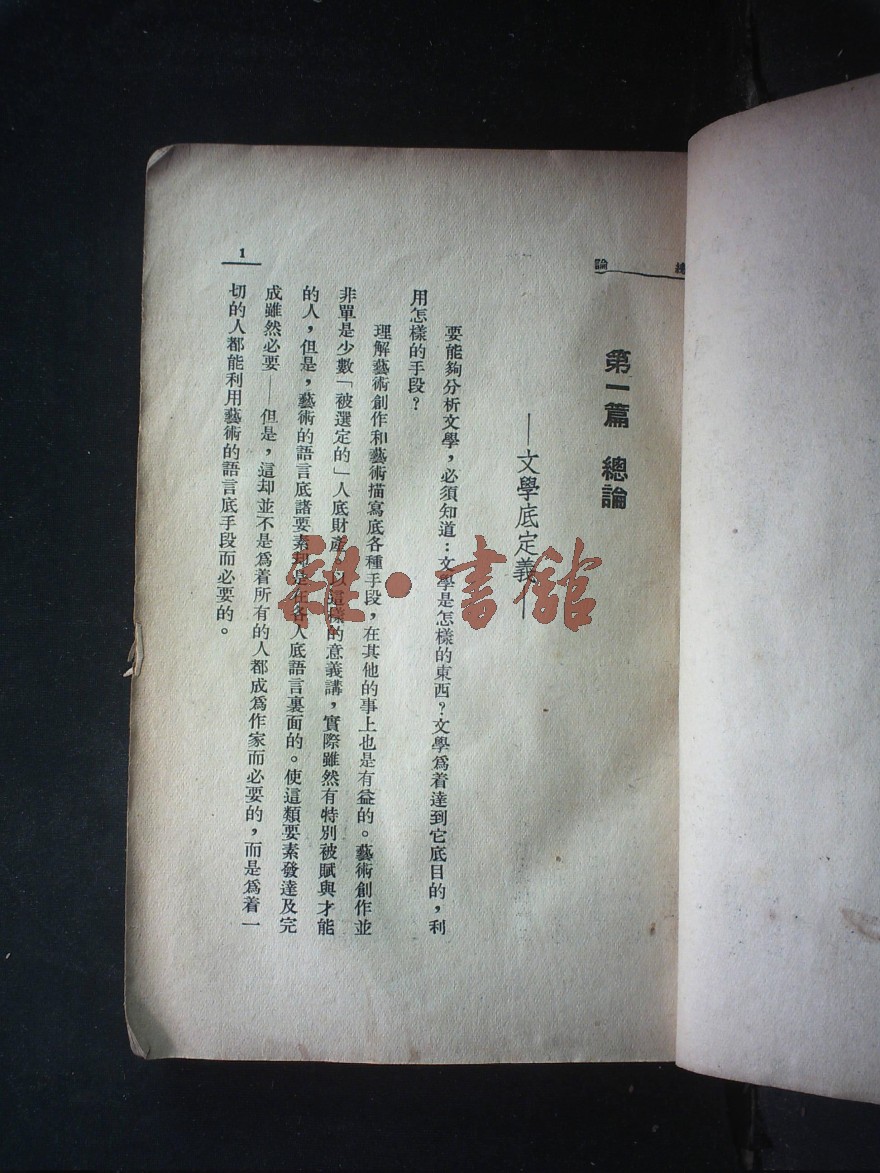 總論
第一篇 總論
——文學底定義——
要能夠分析文學，必須知道：文學是怎樣的東西？文學爲着達到它底目的，利
用怎樣的手段？
理解藝術創作和藝術描寫底各種手段，在其他的事上也是有益的。藝術創作並
非單是少數「被選定的」人底財產，以這樣的意義講，實際雖然有特別被賦與才能
的人，但是，藝術的語言底諸要素却是在各人底語言裏面的。使這類要素發達及完
成雖然必要——但是，這却並不是爲着所有的人都成爲作家而必要的，而是爲着一
切的人都能利用藝術的語言底手段而必要的。
1
雜·書館